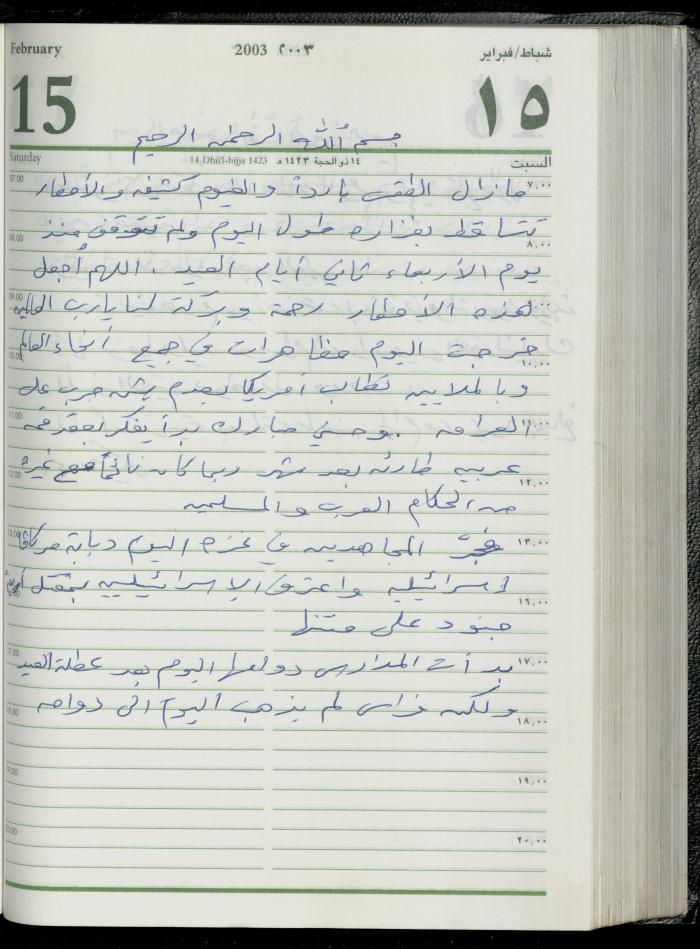 February 2003 ٢٠٠٣ شباط/فبراير
15 ١٥
بسم الله الرحمن الرحيم
Saturday 14 Dhû'l-hijja 1423 ١٤ ذو الحجة ١٤٢٣ هـ السبت
07.00 ٧,٠٠ مازال الطقس بارداً والغيوم كثيفه والأمطار
تتساقط بغزاره طول اليوم ولم تتوقف منذ
08.00 ٨,٠٠
يوم الأربعاء ثاني أيام العيد . اللهم أجعل
09.00 هذه الأمطار رحمة وبركة لنا يارب العالمين
خرجت اليوم مظاهرات في جميع أنحاء العالم
10.00 ١٠,٠٠
وبالملايين تطالب أمريكا بعدم شن حرب على
11.00 ١١,٠٠ العراق . وحسني مبارك بدأ يفكر بعقد قمة
عربيه طارئه بعد شهر ربما كان نائماً مع غيره
12.00 ١٢,٠٠
من الحكام العرب والمسلمين
13.00 ١٣,٠٠ فجرّ المجاهدين في غزه اليوم دبابة مركافا
اسرائيليه واعترف الإسرائيليين بمقتل أربعة
١٦,٠٠
جنود على متنها
17.00 ١٧,٠٠ بدأت المدارس دوامها اليوم بعد عطلة العيد
ولكن فراس لم يذهب اليوم الى دوامه
18.00 ١٨,٠٠
19.00 ١٩,٠٠
20.00 ٢٠,٠٠